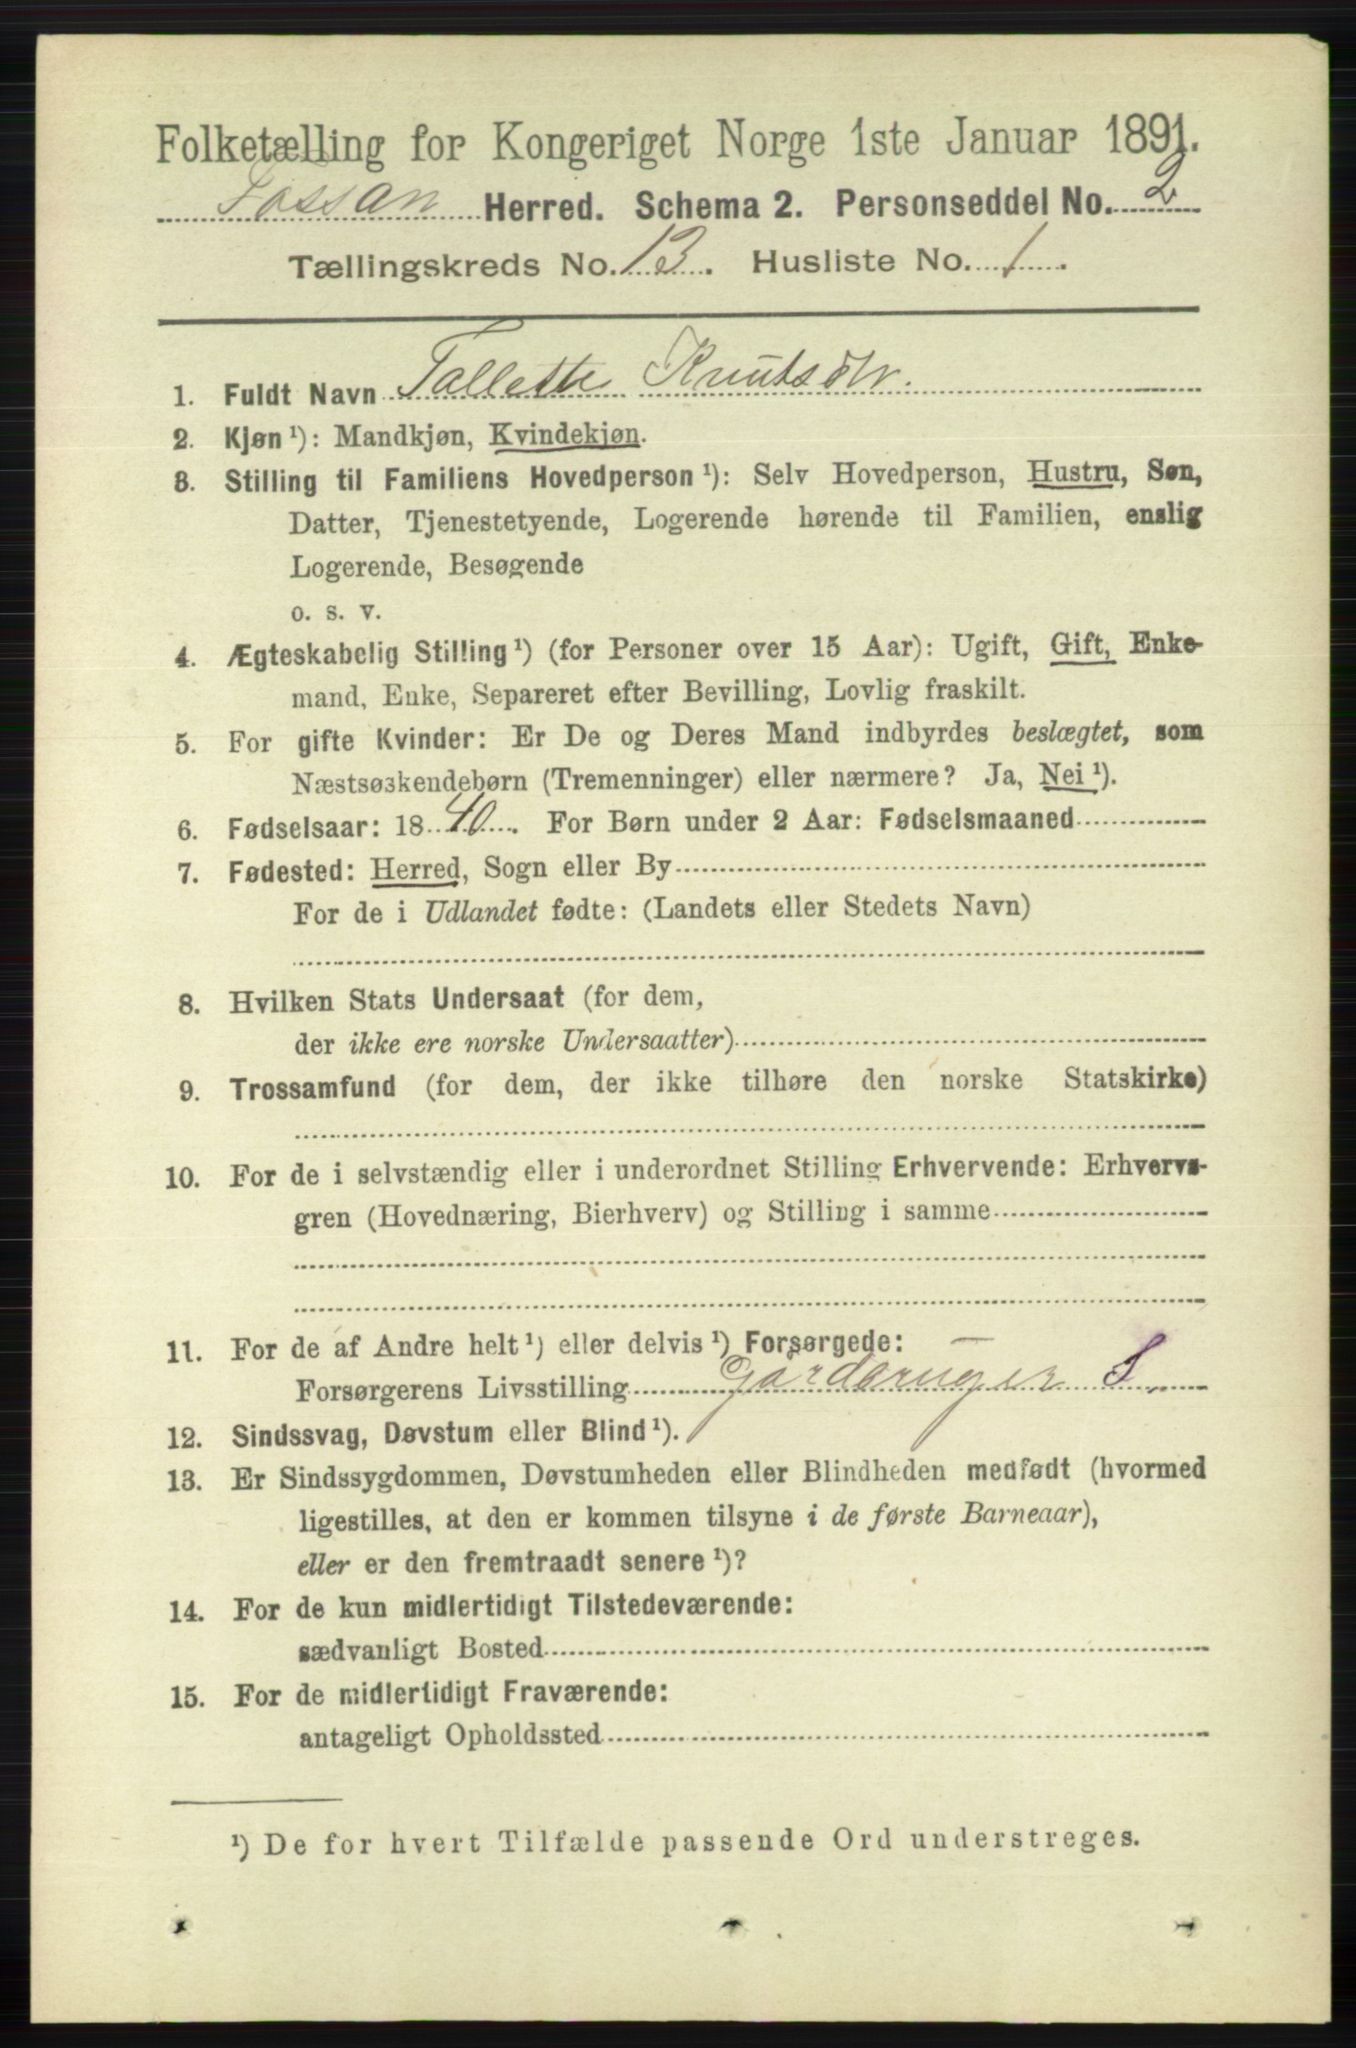 Folketælling for Kongeriget Norge 1ste Januar 1891.
Fossan Herred. Schema 2. Personseddel No. 2
Tællingskreds No. 13. Husliste No. 1.
1. Fuldt Navn Tallette Knutsdtr.
2. Kjøn¹): Mandkjøn, Kvindekjøn.
3. Stilling til Familiens Hovedperson¹): Selv Hovedperson, Hustru, Søn,
Datter, Tjenestetyende, Logerende hørende til Familien, enslig
Logerende, Besøgende
o. s. v.
4. Ægteskabelig Stilling¹) (for Personer over 15 Aar): Ugift, Gift, Enke-
mand, Enke, Separeret efter Bevilling, Lovlig fraskilt.
5. For gifte Kvinder: Er De og Deres Mand indbyrdes beslægtet, som
Næstsøskendebørn (Tremenninger) eller nærmere? Ja, Nei¹).
6. Fødselsaar: 1840. For Børn under 2 Aar: Fødselsmaaned
7. Fødested: Herred, Sogn eller By
For de i Udlandet fødte: (Landets eller Stedets Navn)
8. Hvilken Stats Undersaat (for dem,
der ikke ere norske Undersaatter)
9. Trossamfund (for dem, der ikke tilhøre den norske Statskirke)
10. For de i selvstændig eller i underordnet Stilling Erhvervende: Erhvervs-
gren (Hovednæring, Bierhverv) og Stilling i samme
11. For de af Andre helt¹) eller delvis¹) Forsørgede:
Forsørgerens Livsstilling Gårdbruger S.
12. Sindssvag, Døvstum eller Blind¹).
13. Er Sindssygdommen, Døvstumheden eller Blindheden medfødt (hvormed
ligestilles, at den er kommen tilsyne i de første Barneaar),
eller er den fremtraadt senere¹)?
14. For de kun midlertidigt Tilstedeværende:
sædvanligt Bosted
15. For de midlertidigt Fraværende:
antageligt Opholdssted
¹) De for hvert Tilfælde passende Ord understreges.